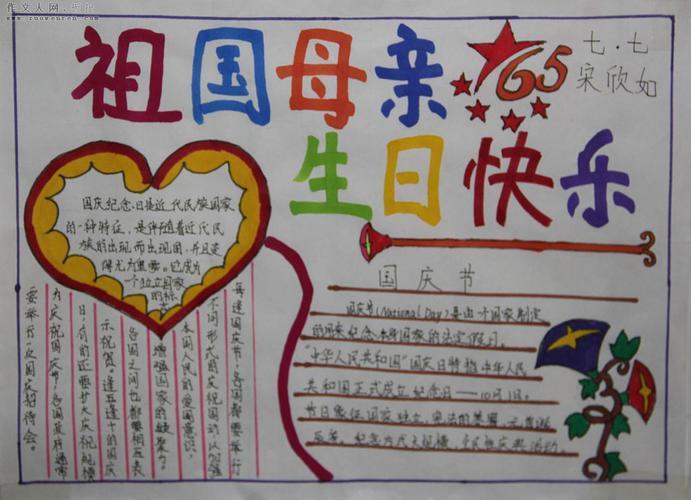 作文人网
www.zuowenren.com
祖国母亲
65
七·七
宋欣如
生日快乐
国庆纪念日是近代民族国家
的一种特征，是伴随着近代民
族的出现而出现的，并且变
得尤为重要。它成为
一个独立国家
的标
国庆节
国庆节(National Day)是由一个国家制定
的用来纪念本身国家的法定假日。
"中华人民共和国"国庆日特指中华人民
共和国正式成立纪念日——10月1日。
节日象征国家独立，宪法的
每逢国庆节，各国都要举行
不同形式的庆祝活动，以加强
本国人民的爱国意识，
增强国家的凝聚力。
各国之间也都要相互表
示祝贺。逢五逢十的国庆
日，有的还要扩大庆祝规模
为庆祝国庆节，各国政府通常
要举行一次国庆招待会。